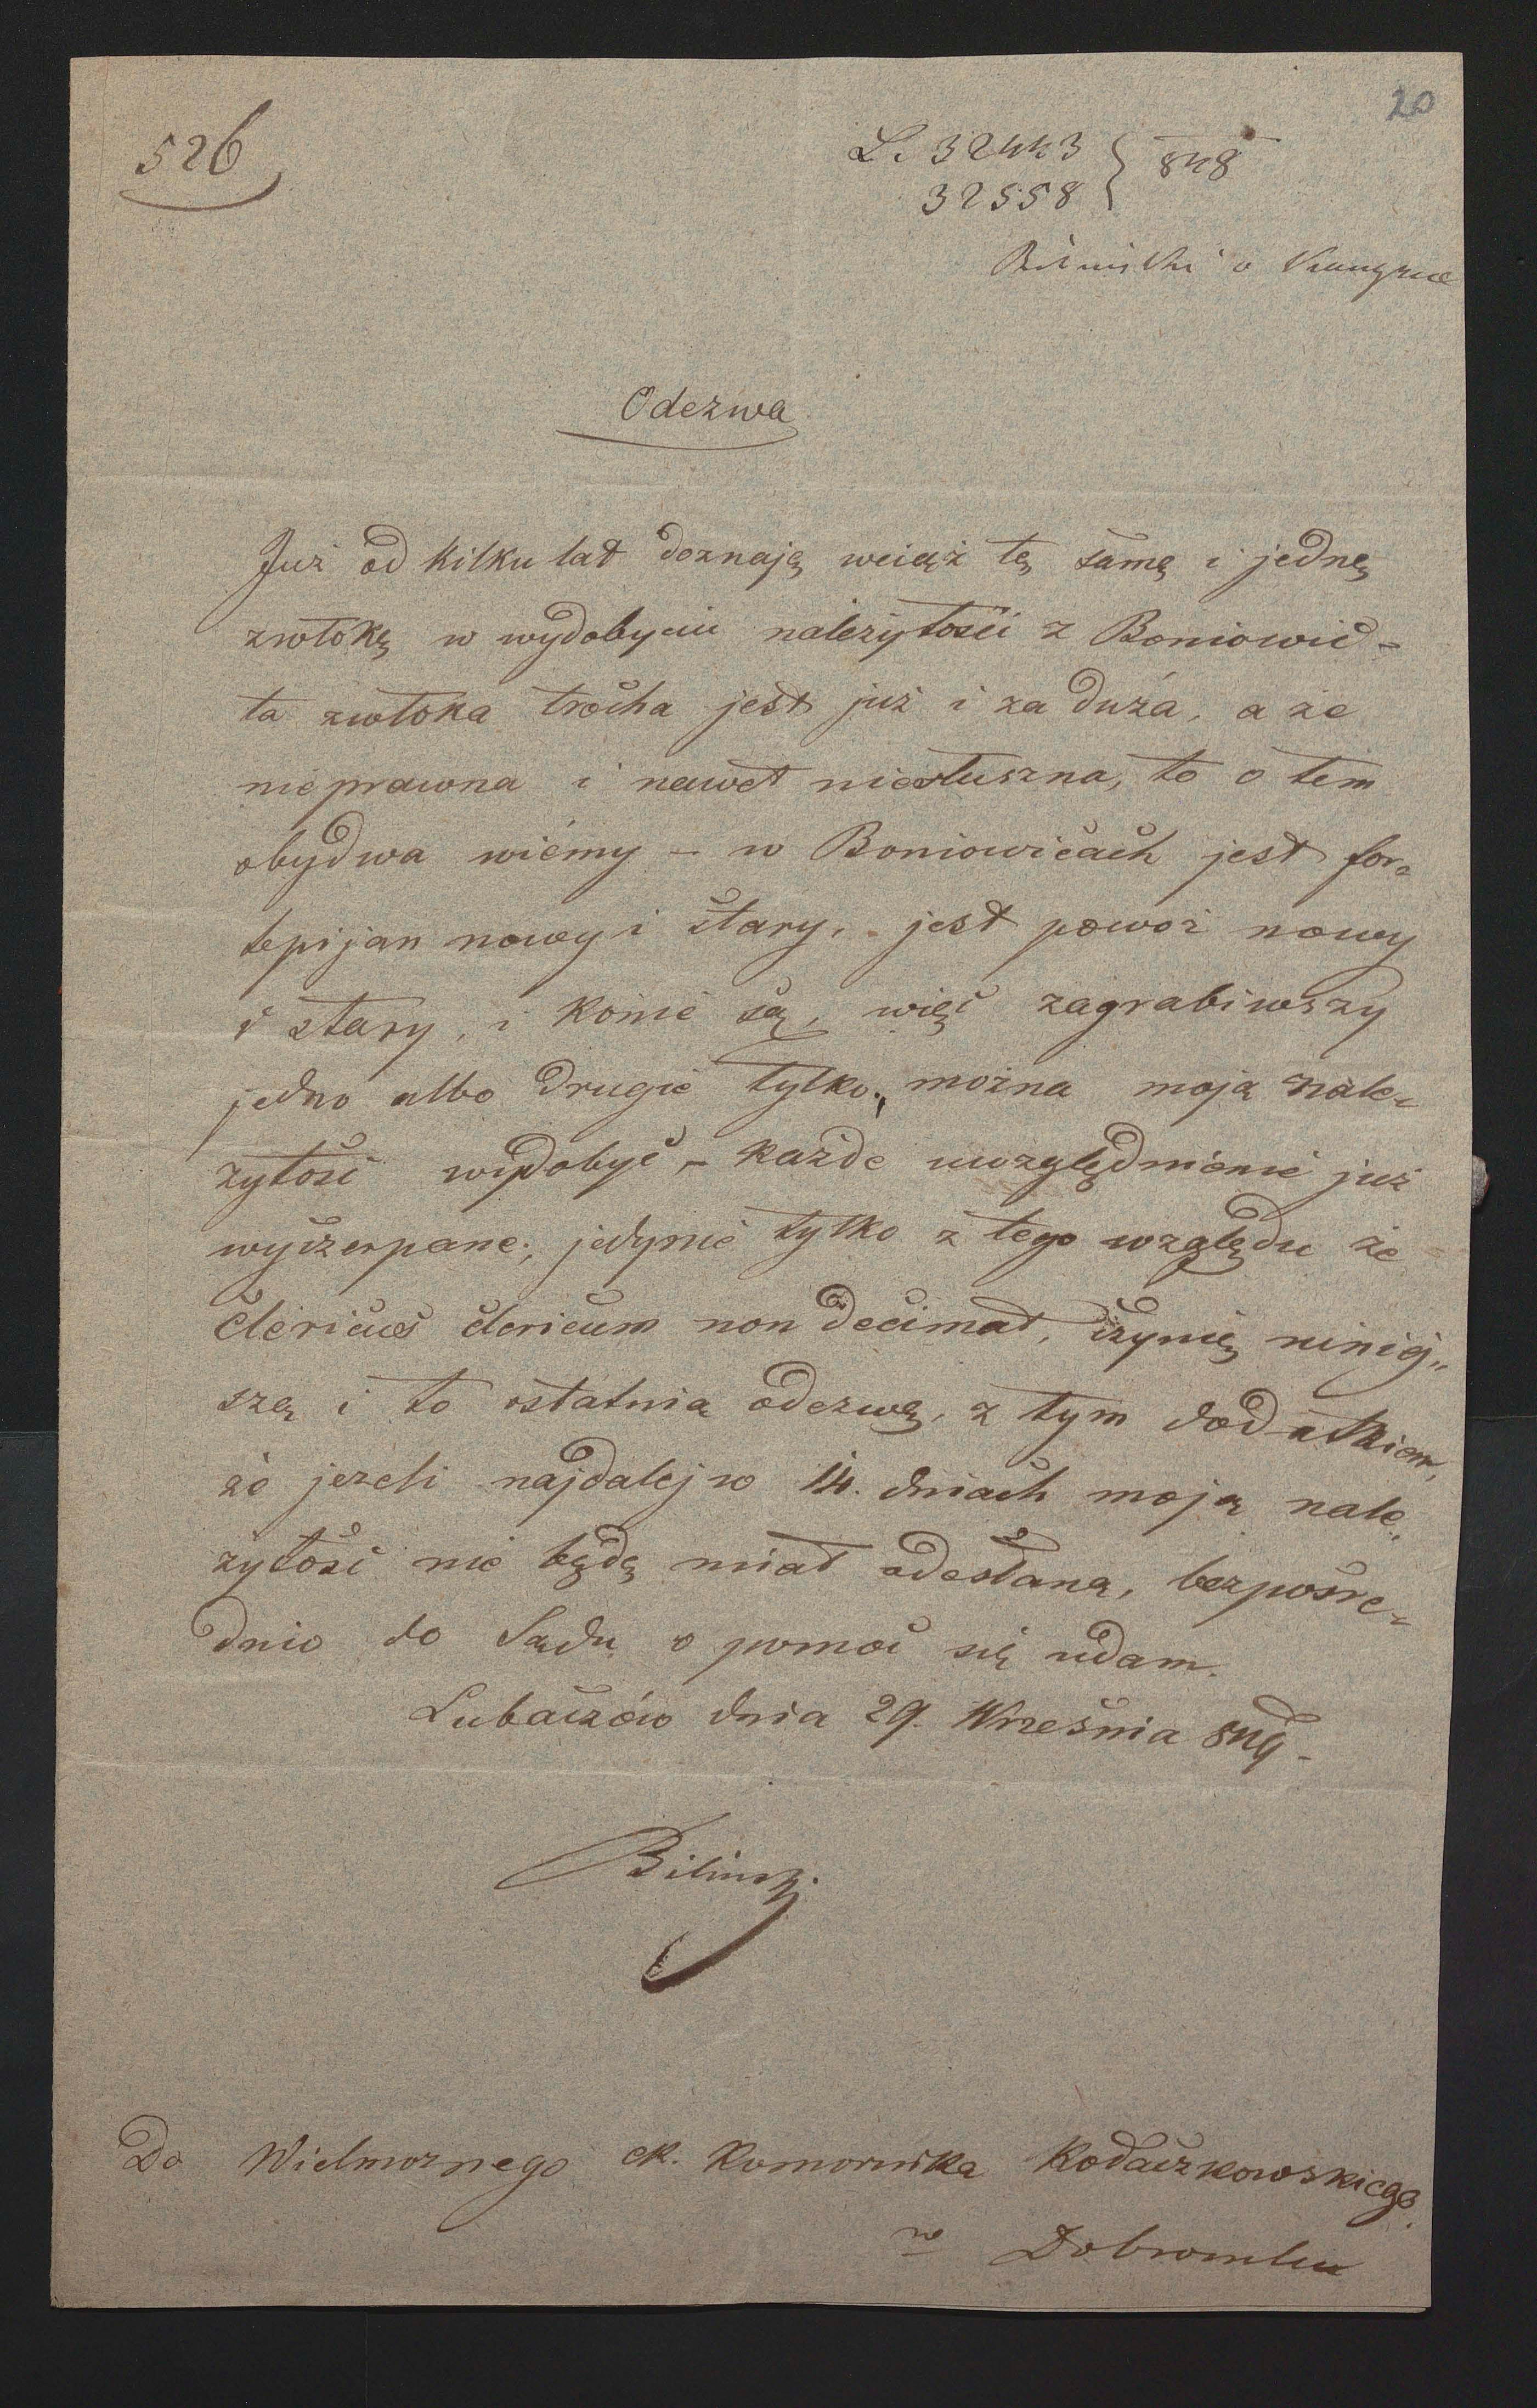 20
526
L. 32443 } 848
32558
Odezwa
Już od kilku lat doznaję wciąż tę samę i jednę
zwłokę w wydobyciu należytości z Boniowic-
ta zwłoka trocha jest już i za duża, a że
nieprawna i nawet niesłuszna, to o tem
obydwa wiémy – w Boniowicach jest for-
tepijan nowy i stary, jest powoz nowy
i stary, i konie są, więc zagrabiwszy
jedno albo drugie tylko, można moją nale-
żytość wydobyć – każde uwzględnienie już
wyczerpane; jedynie tylko z tego względu że
clericus clericum non decimat, czynię niniej„
szą i to ostatnią odezwę, z tym dodatkiem,
że jezeli najdalej w 14. dniach moją nale,
żytość nie będę miał odesłaną, bezpośre-
dnio do Sądu o pomoc się udam.
Lubaczów dnia 29. Września 849 -
Bilinski
Do Wielmoznego ck. Komornika Kodaczkowskiego.
w Dobromilu